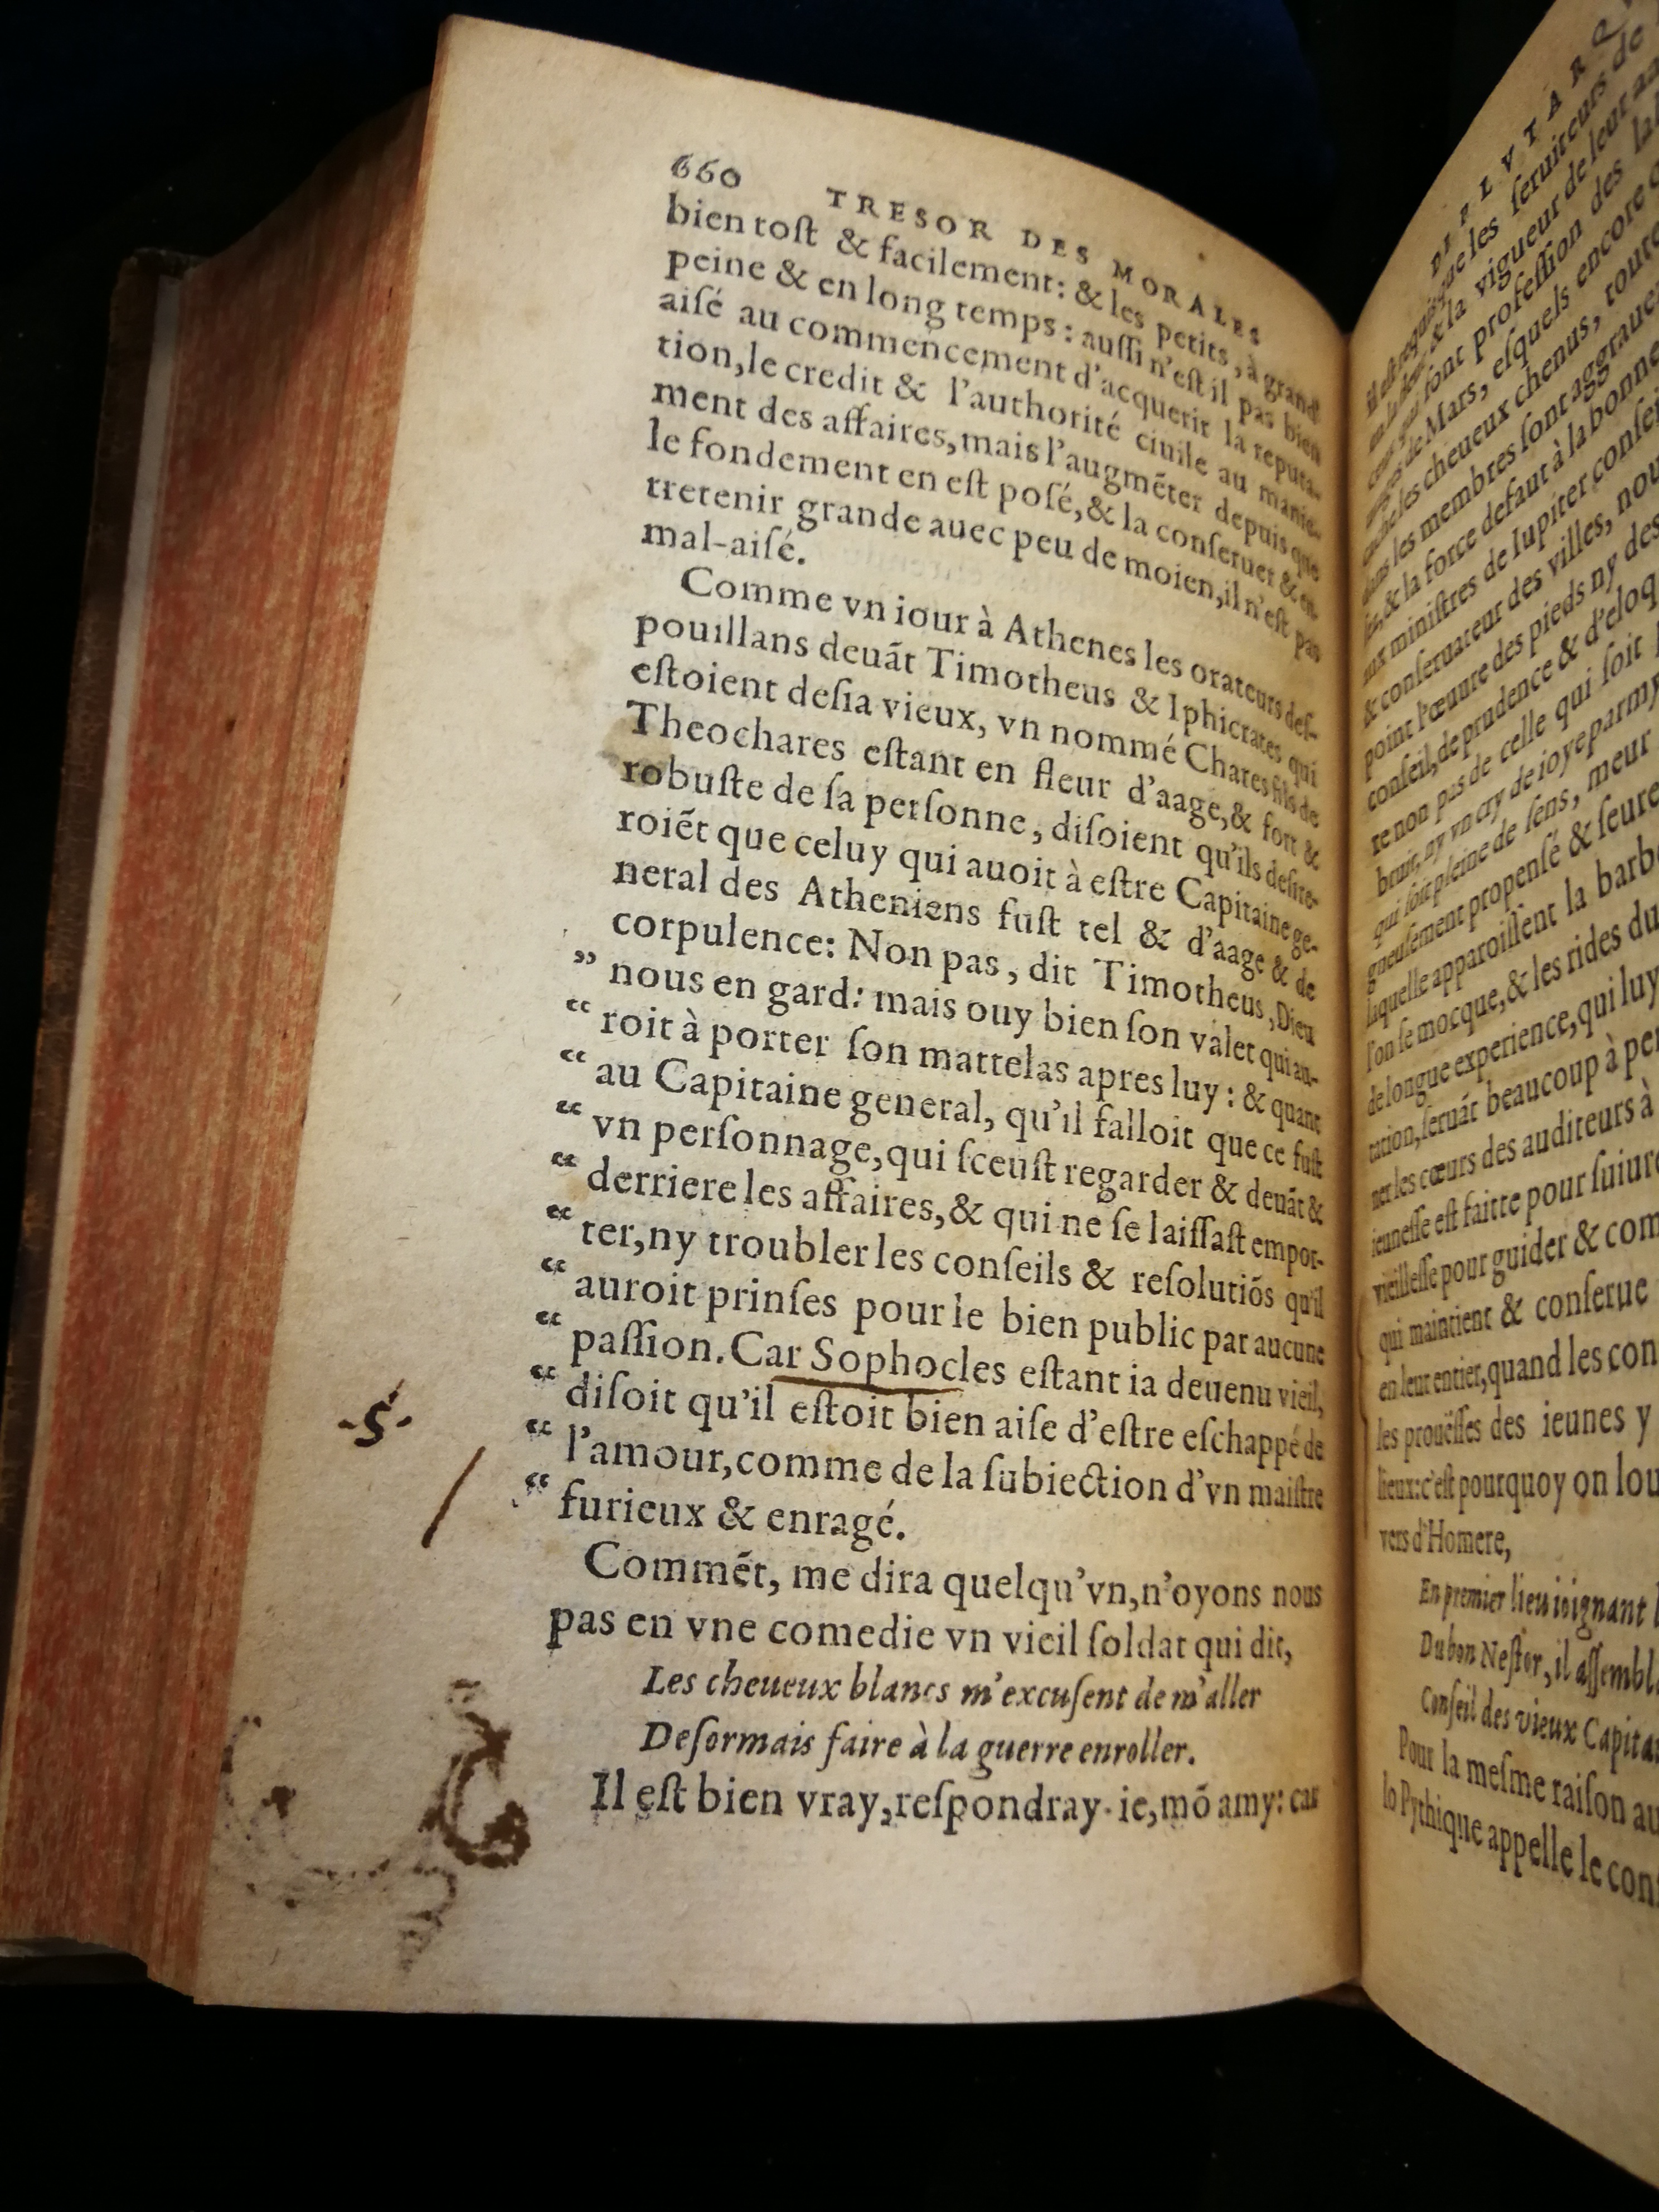 660 TRESOR DES MORALES
bien toſt & facilement: & les petits, à grand
peine & en long temps: auſſi n'eſt il pas bien
aiſé au commencement d'acquerir la reputa-
tion, le credit & l'authorité ciuile au manie-
ment des affaires, mais l'augmēter depuis que
le fondement en eſt poſé, & la conſeruer & en-
tretenir grande auec peu de moien, il n'eſt pas
mal-aiſé.
Comme vn iour à Athenes les orateurs deſ-
pouillans deuāt Timotheus & Iphicrates qui
eſtoient deſia vieux, vn nommé Chares fils de
Theochares eſtant en fleur d'aage, & fort &
robuſte de ſa perſonne, diſoient qu'ils deſire-
roiēt que celuy qui auoit à eſtre Capitaine ge-
neral des Atheniens fuſt tel & d'aage & de
corpulence: Non pas, dit Timotheus, Dieu
” nous en gard: mais ouy bien ſon valet qui au-
“ roit à porter ſon mattelas apres luy: & quant
“ au Capitaine general, qu'il falloit que ce fuſt
“ vn perſonnage, qui ſceuſt regarder & deuāt &
“ derriere les affaires, & qui ne ſe laiſſaſt empor-
“ ter, ny troubler les conſeils & reſolutiōs qu'il
“ auroit prinſes pour le bien public par aucune
“ paſſion. Car Sophocles eſtant ia deuenu vieil,
“ diſoit qu'il eſtoit bien aiſe d'eſtre eſchappé de
“ l'amour, comme de la ſubiection d'vn maiſtre
“ furieux & enragé.
-S-
Commēt, me dira quelqu'vn, n'oyons nous
pas en vne comedie vn vieil ſoldat qui dit,
Les cheueux blancs m'excuſent de m'aller
Deſormais faire à la guerre enroller.
Il eſt bien vray, reſpondray-ie, mō amy: car
DE PLVTARQ
ſeruiteurs de
& la vigueur de leur aa
font profeſſion des
de Mars, eſquels encore
les cheueux chenus, toute
les membres ſont aggraue
& la force defaut à la bonne
miniſtres de Iupiter conſei
& conſeruateur des villes, nou
point l'œuure des pieds ny des
conſeil, de prudence & d'eloq
re non pas de celle qui ſoit
bruit, ny vn cry de ioye parmy
qui ſoit pleine de ſens, meur
gneuſement propenſé & ſeure
laquelle apparoiſſent la barb
l'on ſe mocque, & les rides du
de longue experience, qui luy
tation, ſeruāt beaucoup à per
ner les cœurs des auditeurs à
ieuneſſe eſt faitte pour ſuiure
vieilleſſe pour guider & com
qui maintient & conſerue
en leur entier, quand les con
les prouëſſes des ieunes y
lieux: c'eſt pourquoy on lou
vers d'Homere,
En premier lieu ioignant
Du bon Neſtor, il aſſembl
Conſeil des vieux Capita
Pour la meſme raiſon au
lo Pythique appelle le con